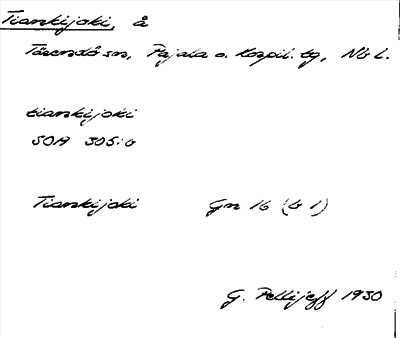 Tiankijoki, å
Tärendö sn, Pajala o. Korpil. tg, Nb l.
tiankijoki
SOA 305:6
Tiankijoki Gn 16 (b 1)
G. Pellijeff 1930